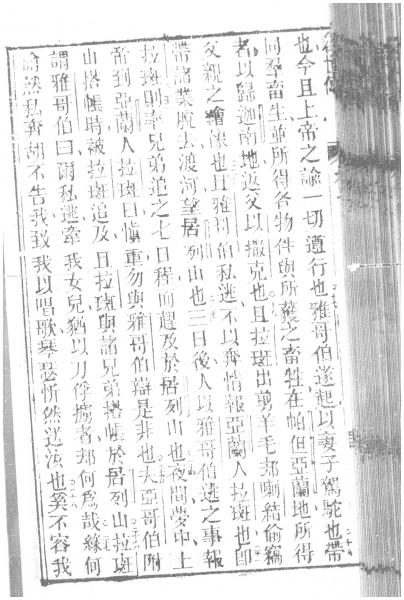 也今且上帝之諭一切遵行也雅哥伯遂起以妻子駕駝也帶
同羣畜生並所得各物件與所獲之畜牲在帕但亞蘭地所得
者以歸迦南地返父以撒克也且拉班出剪羊毛郍喇結偷竊
父親之繪像也且雅哥伯私逃不以奔情報亞蘭人拉班也卽
帶諸業脫去渡河望居列山也三日後人以雅哥伯逃之事報
拉班則率兄弟追之七日程而趕及於居列山也夜間夢中上
帝到亞蘭人拉班曰愼重勿與雅哥伯辯是非也夫亞哥伯附
山搭帳時被拉班追及且拉班與諸兄弟搭帳於居列山拉班
謂雅哥伯曰爾私逃牽我女兒猶以刀俘擄者郍何爲哉緣何
偷然私奔胡不告我致我以唱歌琴瑟忻然送汝也奚不容我